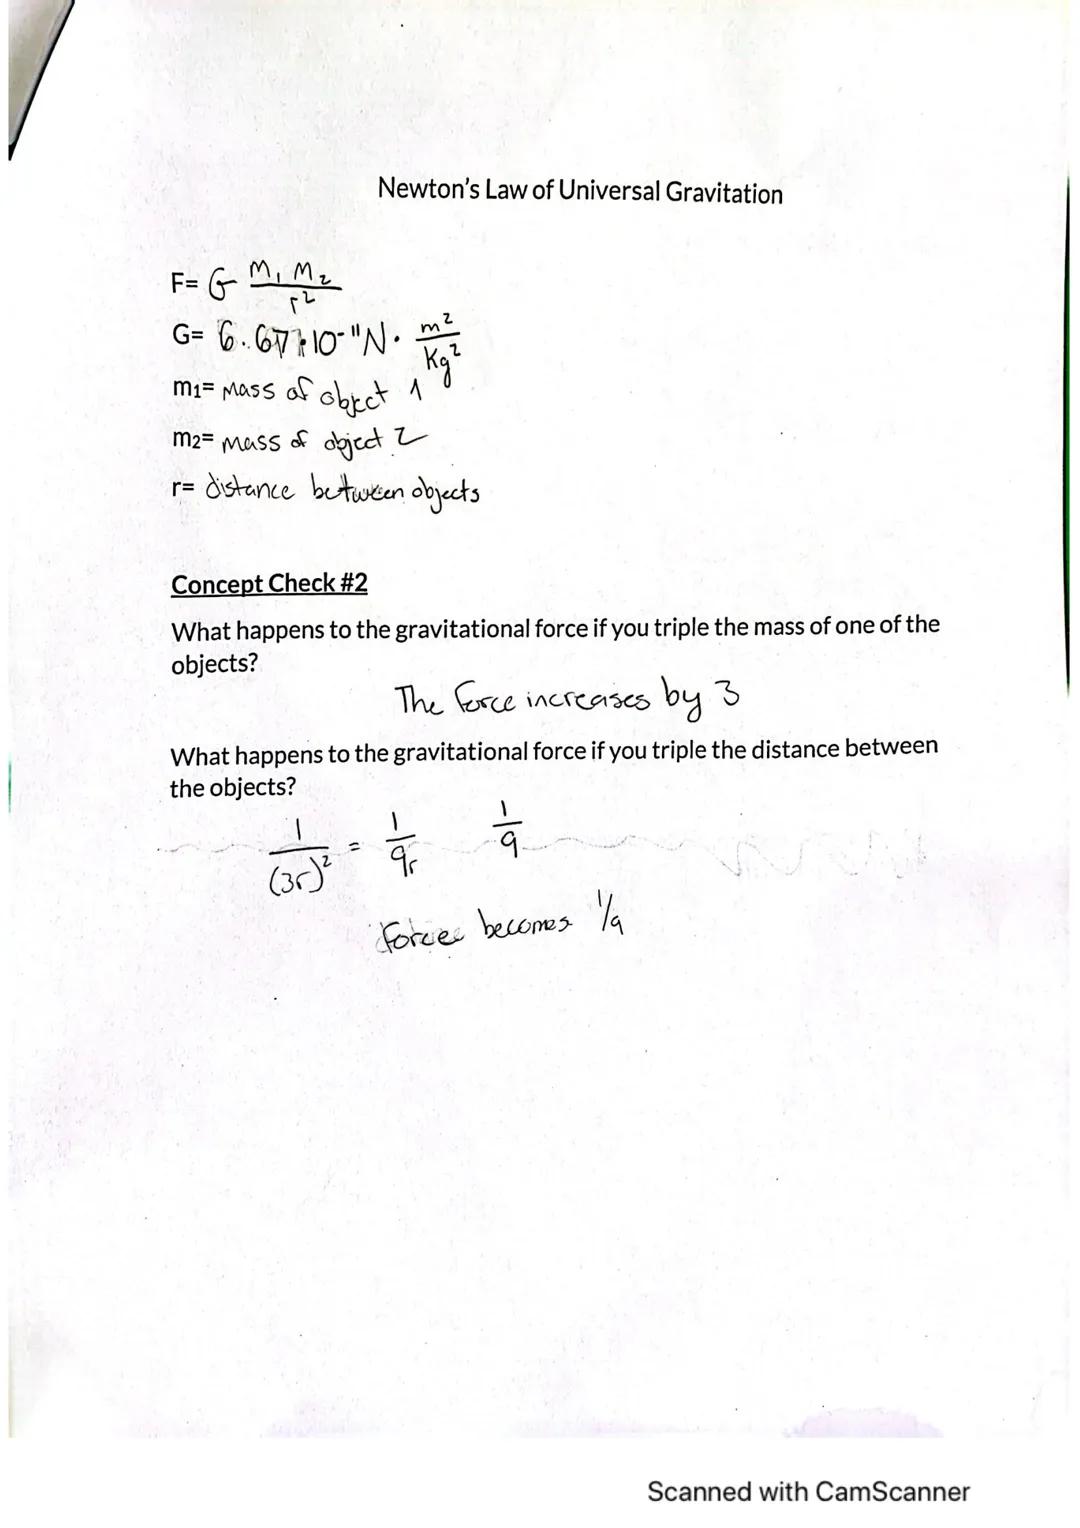 Newton's Law of Universal Gravitation
F= G m₁ m₂ / r²
G= 6.67·10⁻¹¹ N · m²/kg²
m1= mass of object 1
m2= mass of object 2
r= distance between objects
Concept Check #2
What happens to the gravitational force if you triple the mass of one of the
objects?
The force increases by 3
What happens to the gravitational force if you triple the distance between
the objects?
1/(3r)² = 1/9r 1/9
Force becomes 1/9
Scanned with CamScanner